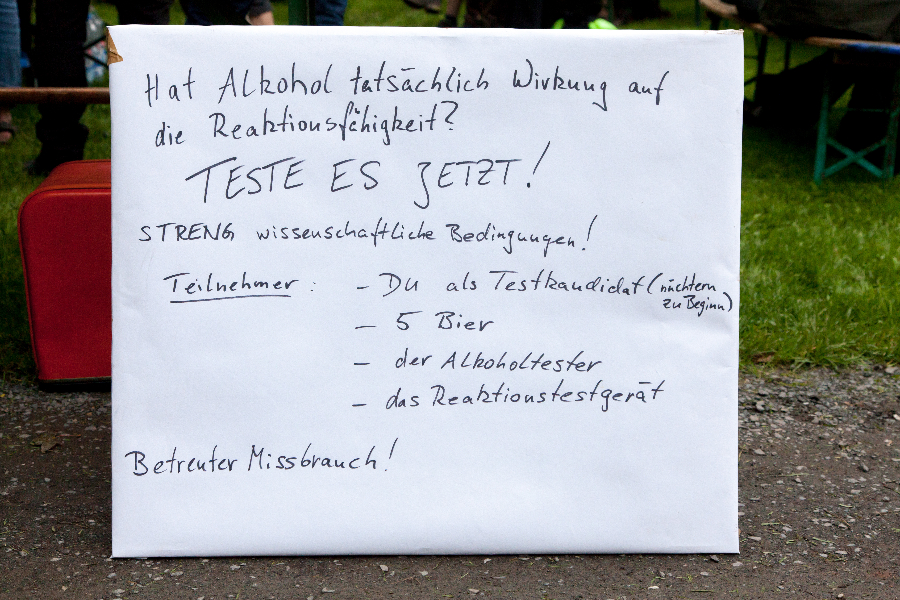 Hat Alkohol tatsächlich Wirkung auf
die Reaktionsfähigkeit?
TESTE ES JETZT!
STRENG wissenschaftliche Bedingungen!
Teilnehmer: - DU als Testkandidat (nüchtern
zu Beginn)
- 5 Bier
- der Alkoholtester
- das Reaktionstestgerät
Betreuter Missbrauch!